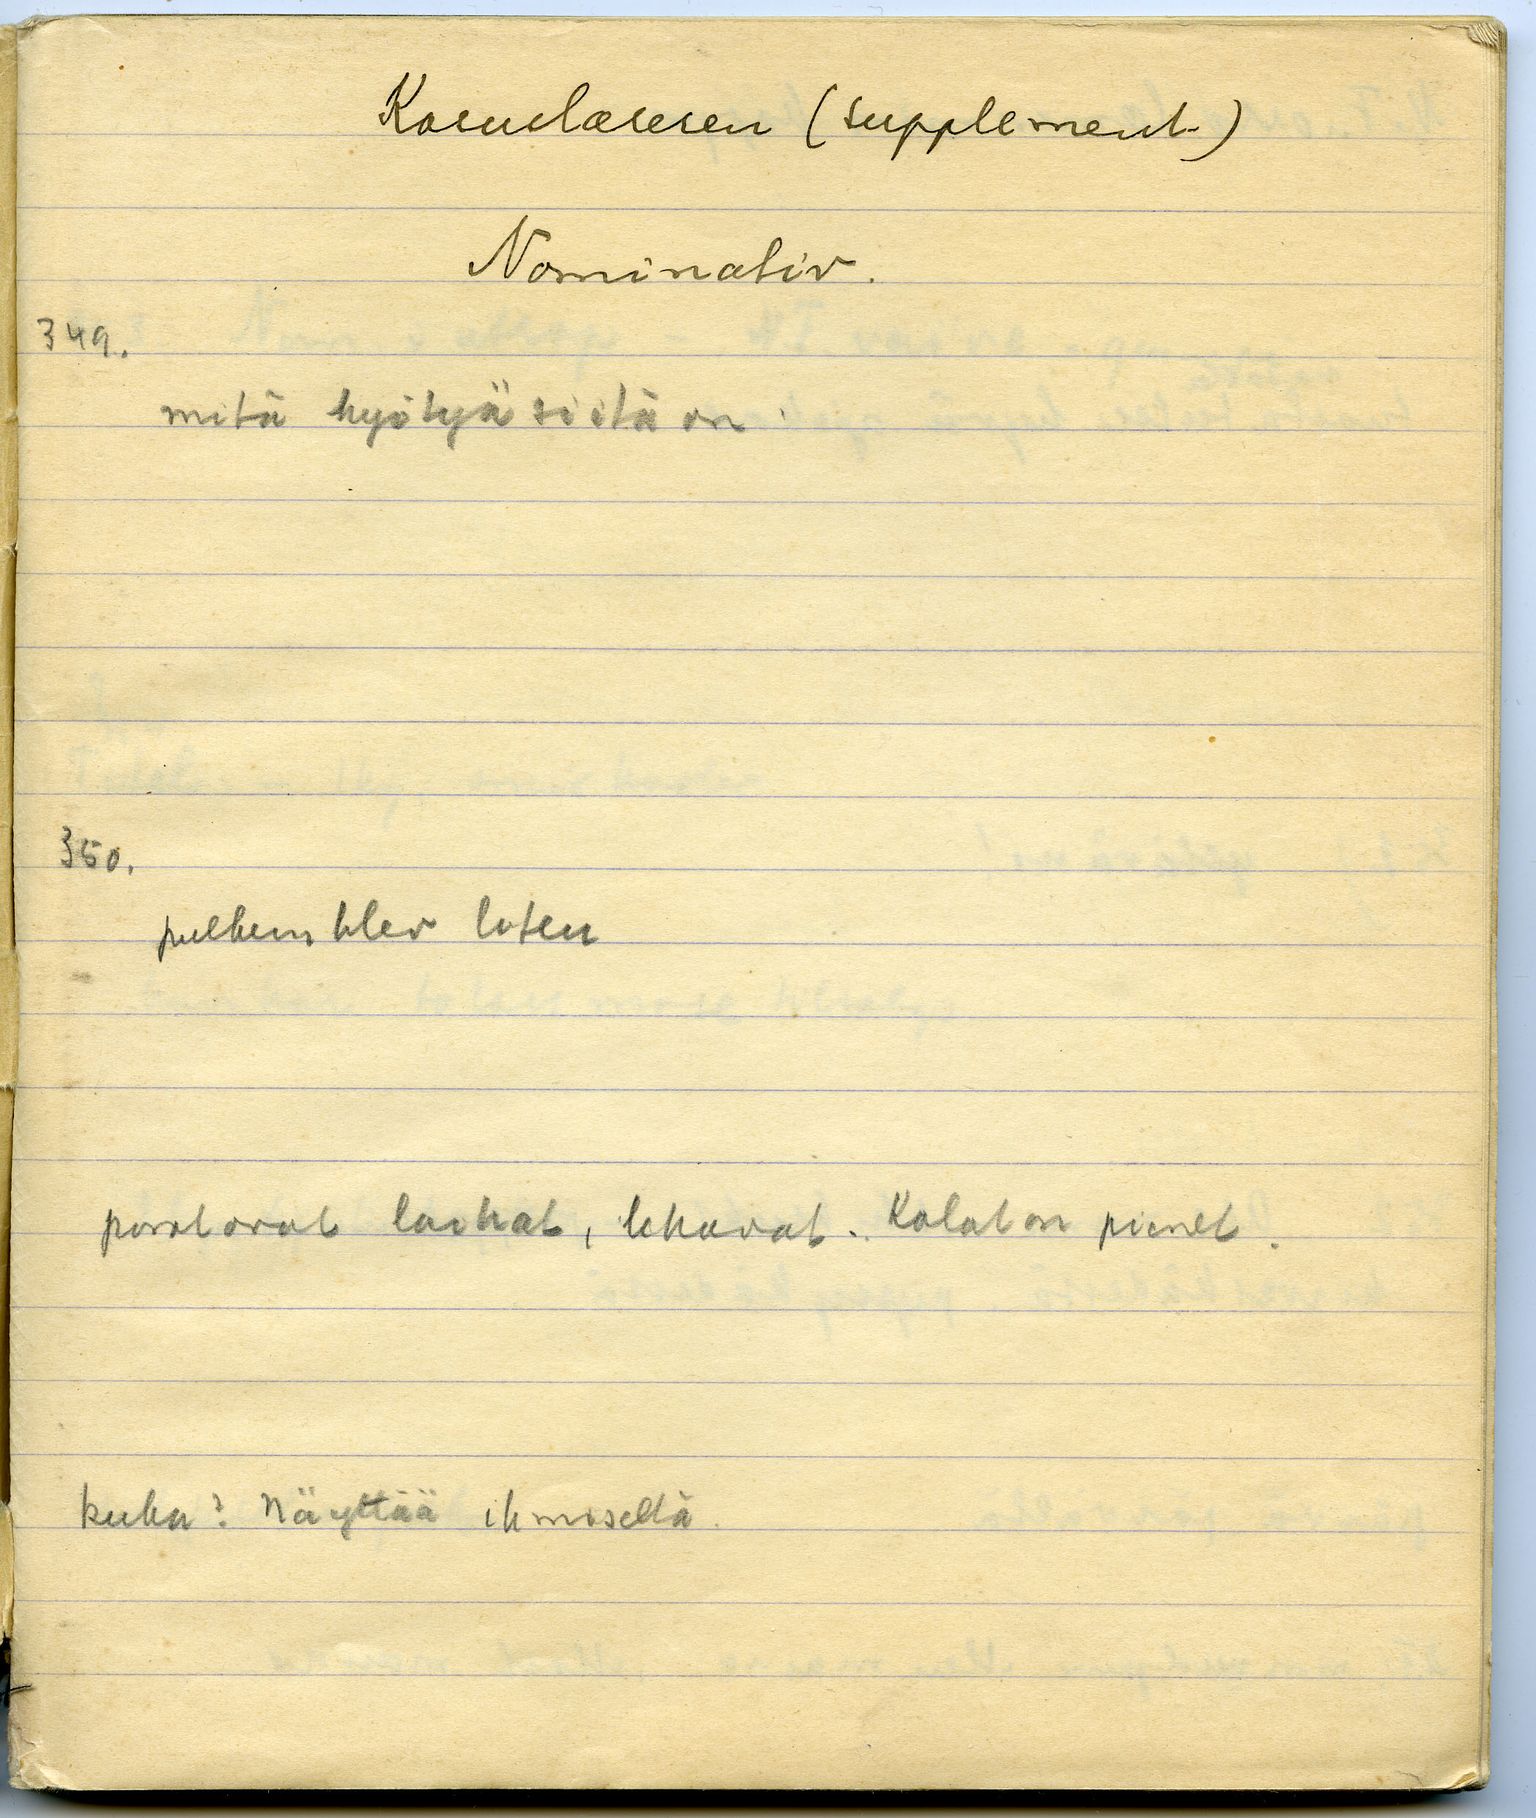 Kasuslæresen (supplement)
Nominativ.
349.
mitä hyötyä siitä on
350.
blev
porot ovat laihat, lihavat. Kalat on pienet.
kuka? Näyttää ihmiseltä.